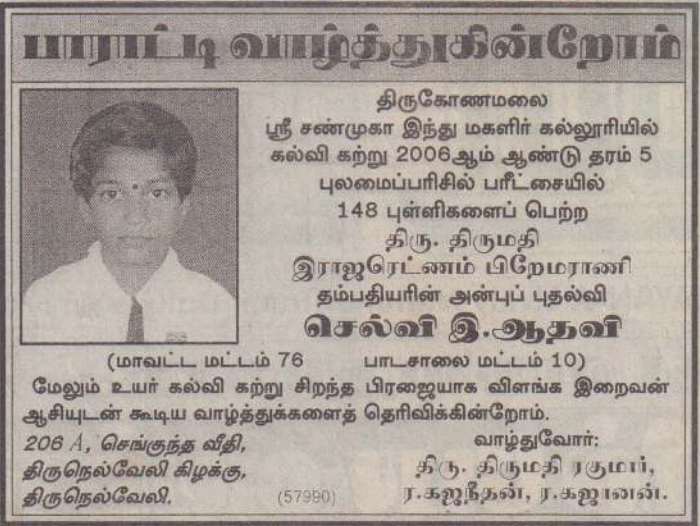 பாராட்டி வாழ்த்துகின்றோம்
திருகோணமலை
ஸ்ரீ சண்முகா இந்து மகளிர் கல்லூரியில்
கல்வி கற்று 2006ஆம் ஆண்டு தரம் 5
புலமைப்பரிசில் பரீட்சையில்
148 புள்ளிகளைப் பெற்ற
திரு. திருமதி
இராஜரெட்ணம் பிறேமராணி
தம்பதியரின் அன்புப் புதல்வி
செல்வி இ.ஆதவி
(மாவட்ட மட்டம் 76 பாடசாலை மட்டம் 10)
மேலும் உயர் கல்வி கற்று சிறந்த பிரஜையாக விளங்க இறைவன்
ஆசியுடன் கூடிய வாழ்த்துக்களைத் தெரிவிக்கின்றோம்.
206 A, செங்குந்த வீதி,
திருநெல்வேலி கிழக்கு,
திருநெல்வேலி.
(57990)
வாழ்துவோர்:
திரு. திருமதி ரகுமார்,
ர.கஜநீதன், ர.கஜானன்.